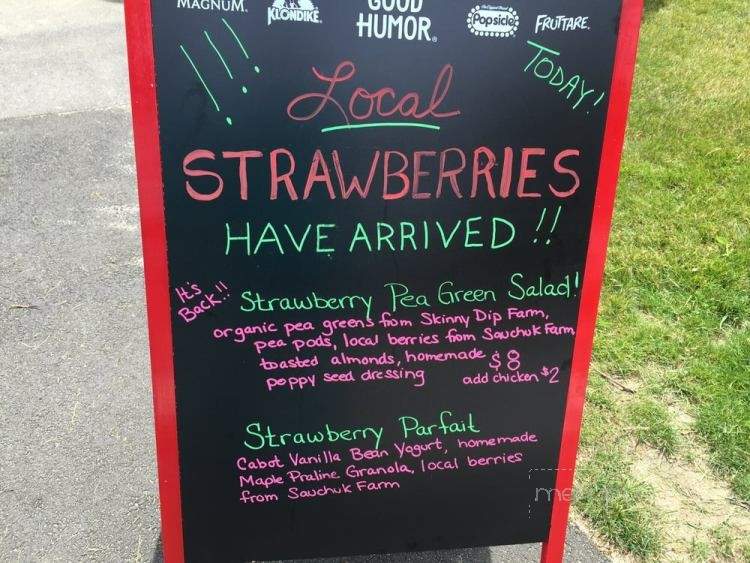 MAGNUM.
KLONDIKE.
GOOD HUMOR®
Popsicle
FRUTTARE.
!!!
TODAY!
Local
STRAWBERRIES
HAVE ARRIVED!!
It's
Back!!
Strawberry Pea Green Salad!
organic pea greens from Skinny Dip Farm,
pea pods, local berries from Sauchuk Farm
toasted almonds, homemade $8
poppy seed dressing add chicken $2
Strawberry Parfait
Cabot Vanilla Bean Yogurt, homemade
Maple Praline Granola, local berries
from Sauchuk Farm